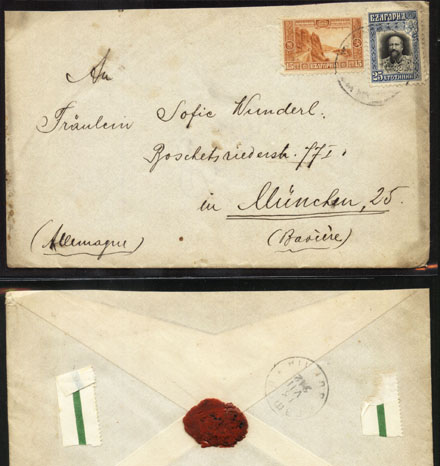 БЪЛГАРИЯ
25 СТОТИНКИ 25
An
Fräulein Sofie Wunderl.
Boschetsriederstr. 77 I.
in München, 25.
(Allemagne)
(Bavière)
VII